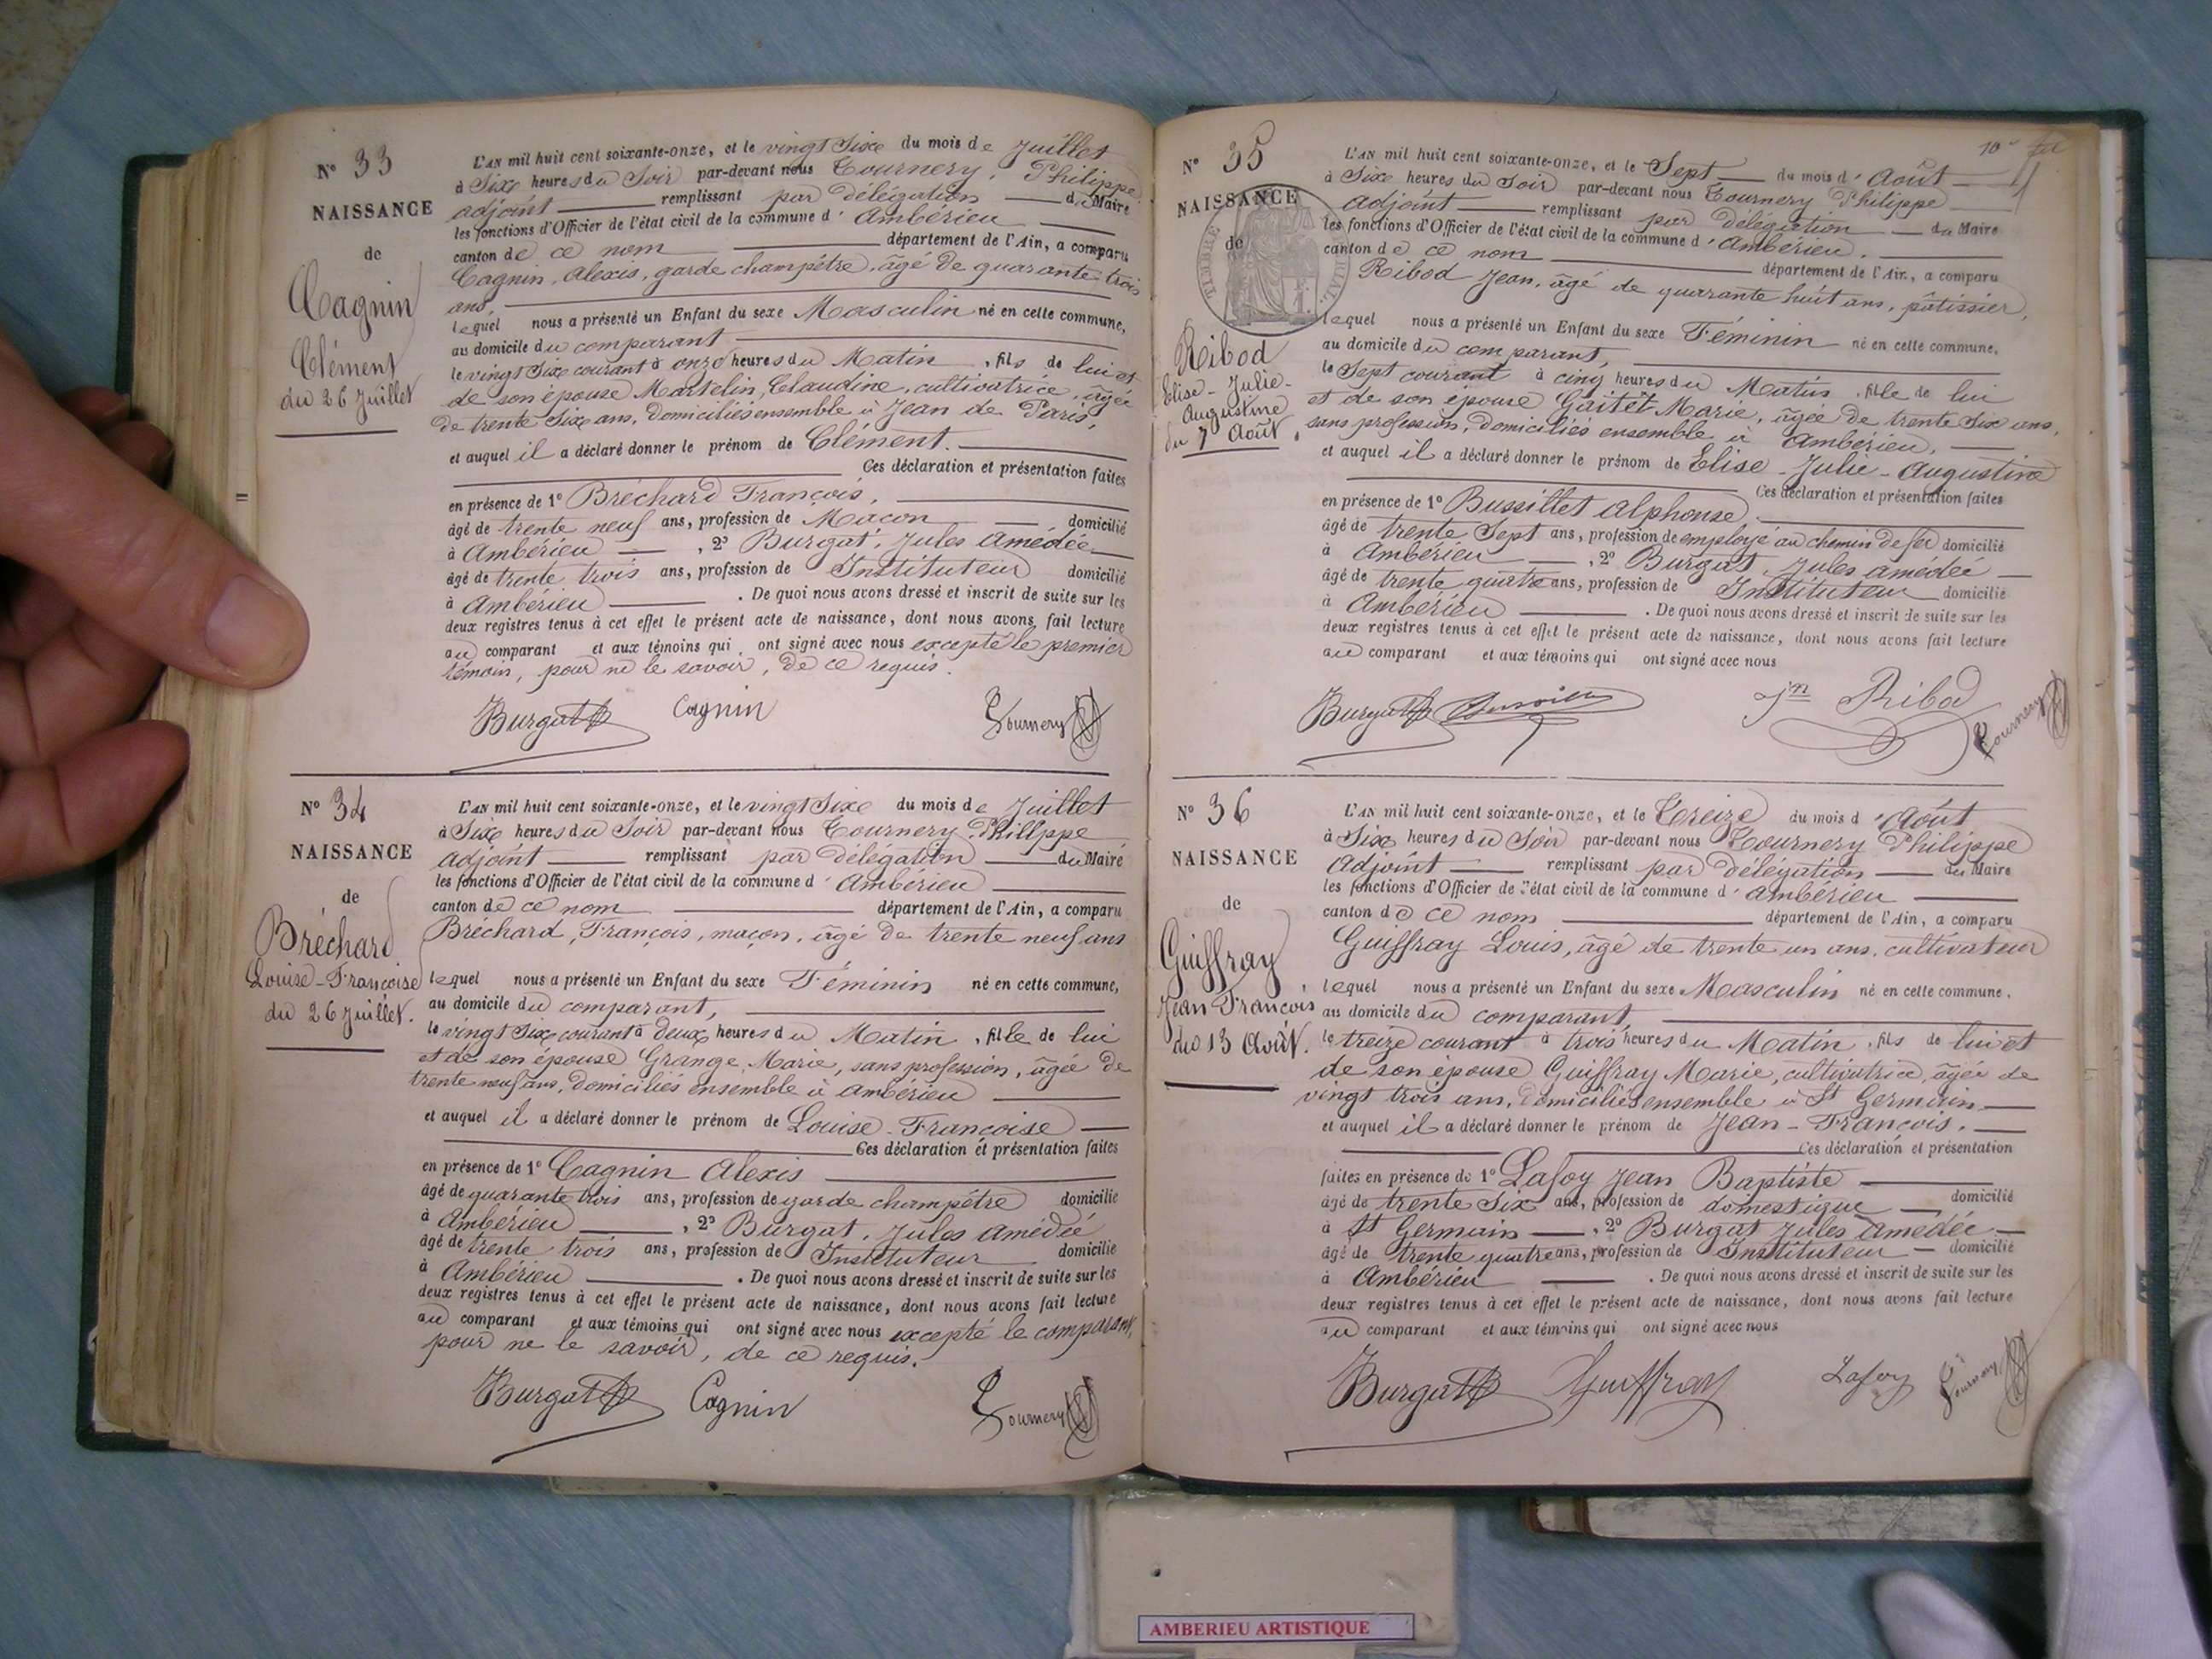 N° 33
NAISSANCE
de
Cagnin
Clément
du 26 Juillet
L'AN mil huit cent soixante-onze, et le vingt Six du mois de Juillet
à Six heures du Soir par-devant nous Tournery, Philippe
adjoint remplissant par délégation du Maire
les fonctions d'Officier de l'état civil de la commune d'Ambérieu
canton de ce nom département de l'Ain, a comparu
Cagnin, Alexis, garde champêtre, âgé de quarante trois
ans,
lequel nous a présenté un Enfant du sexe Masculin né en cette commune,
au domicile du comparant
le vingt Six courant à onze heures du Matin, fils de lui et
de son épouse Martelin, Claudine, cultivatrice, âgée
de trente Six ans, domiciliés ensemble à Jean de Paris,
et auquel il a déclaré donner le prénom de Clément.
Ces déclaration et présentation faites
en présence de 1° Bréchard François,
âgé de trente neuf ans, profession de Maçon domicilié
à Ambérieu, 2° Burgat, Jules Amédée
âgé de trente trois ans, profession de Instituteur domicilié
à Ambérieu. De quoi nous avons dressé et inscrit de suite sur les
deux registres tenus à cet effet le présent acte de naissance, dont nous avons fait lecture
au comparant et aux témoins qui ont signé avec nous excepté le premier
témoin, pour ne le savoir, de ce requis.
Burgat Cagnin Tournery
N° 34
NAISSANCE
de
Bréchard
Louise-Françoise
du 26 Juillet.
L'AN mil huit cent soixante-onze, et le vingt Six du mois de Juillet
à Six heures du Soir par-devant nous Tournery, Philippe
adjoint remplissant par délégation du Maire
les fonctions d'Officier de l'état civil de la commune d'Ambérieu
canton de ce nom département de l'Ain, a comparu
Bréchard, François, maçon, âgé de trente neuf ans
lequel nous a présenté un Enfant du sexe Féminin né en cette commune,
au domicile du comparant,
le vingt Six courant à deux heures du Matin, fille de lui
et de son épouse Grange Marie, sans profession, âgée de
trente neuf ans, domiciliés ensemble à Ambérieu
et auquel il a déclaré donner le prénom de Louise-Françoise
Ces déclaration et présentation faites
en présence de 1° Cagnin Alexis
âgé de quarante trois ans, profession de garde champêtre domicilié
à Ambérieu, 2° Burgat, Jules Amédée
âgé de trente trois ans, profession de Instituteur domicilié
à Ambérieu. De quoi nous avons dressé et inscrit de suite sur les
deux registres tenus à cet effet le présent acte de naissance, dont nous avons fait lecture
au comparant et aux témoins qui ont signé avec nous excepté le comparant,
pour ne le savoir, de ce requis.
Burgat Cagnin Tournery
10
N° 35
NAISSANCE
de
TIMBRE
Ribod
Elise-Julie-
Augustine
du 7 Août.
L'AN mil huit cent soixante-onze, et le Sept du mois d'Août
à Six heures du Soir par-devant nous Tournery Philippe
adjoint remplissant par délégation du Maire
les fonctions d'Officier de l'état civil de la commune d'Ambérieu,
canton de ce nom département de l'Ain, a comparu
Ribod Jean, âgé de quarante huit ans, pâtissier,
lequel nous a présenté un Enfant du sexe Féminin né en cette commune,
au domicile du comparant,
le Sept courant à cinq heures du Matin, fille de lui
et de son épouse Gaitet Marie, âgée de trente Six ans,
sans profession, domiciliés ensemble à Ambérieu,
et auquel il a déclaré donner le prénom de Elise-Julie-Augustine
Ces déclaration et présentation faites
en présence de 1° Bussillet Alphonse
âgé de trente Sept ans, profession de employé au chemin de fer domicilié
à Ambérieu, 2° Burgat Jules Amédée
âgé de trente quatre ans, profession de Instituteur domicilié
à Ambérieu. De quoi nous avons dressé et inscrit de suite sur les
deux registres tenus à cet effet le présent acte de naissance, dont nous avons fait lecture
au comparant et aux témoins qui ont signé avec nous
Burgat Jn Ribod Tournery
N° 36
NAISSANCE
de
Guiffray
Jean François
du 13 Août.
L'AN mil huit cent soixante-onze, et le Treize du mois d'Août
à Six heures du Soir par-devant nous Tournery Philippe
Adjoint remplissant par délégation du Maire
les fonctions d'Officier de l'état civil de la commune d'Ambérieu
canton de ce nom département de l'Ain, a comparu
Guiffray Louis, âgé de trente un ans, cultivateur
lequel nous a présenté un Enfant du sexe Masculin né en cette commune,
au domicile du comparant,
le treize courant à trois heures du Matin, fils de lui et
de son épouse Guiffray Marie, cultivatrice, âgée de
vingt trois ans, domiciliés ensemble à St Germain
et auquel il a déclaré donner le prénom de Jean-François.
Ces déclaration et présentation
faites en présence de 1° Lafoy Jean Baptiste
âgé de trente Six ans, profession de domestique domicilié
à St Germain, 2° Burgat Jules Amédée
âgé de trente quatre ans, profession de Instituteur domicilié
à Ambérieu. De quoi nous avons dressé et inscrit de suite sur les
deux registres tenus à cet effet le présent acte de naissance, dont nous avons fait lecture
au comparant et aux témoins qui ont signé avec nous
Burgat Guiffray Lafoy Tournery
AMBERIEU ARTISTIQUE